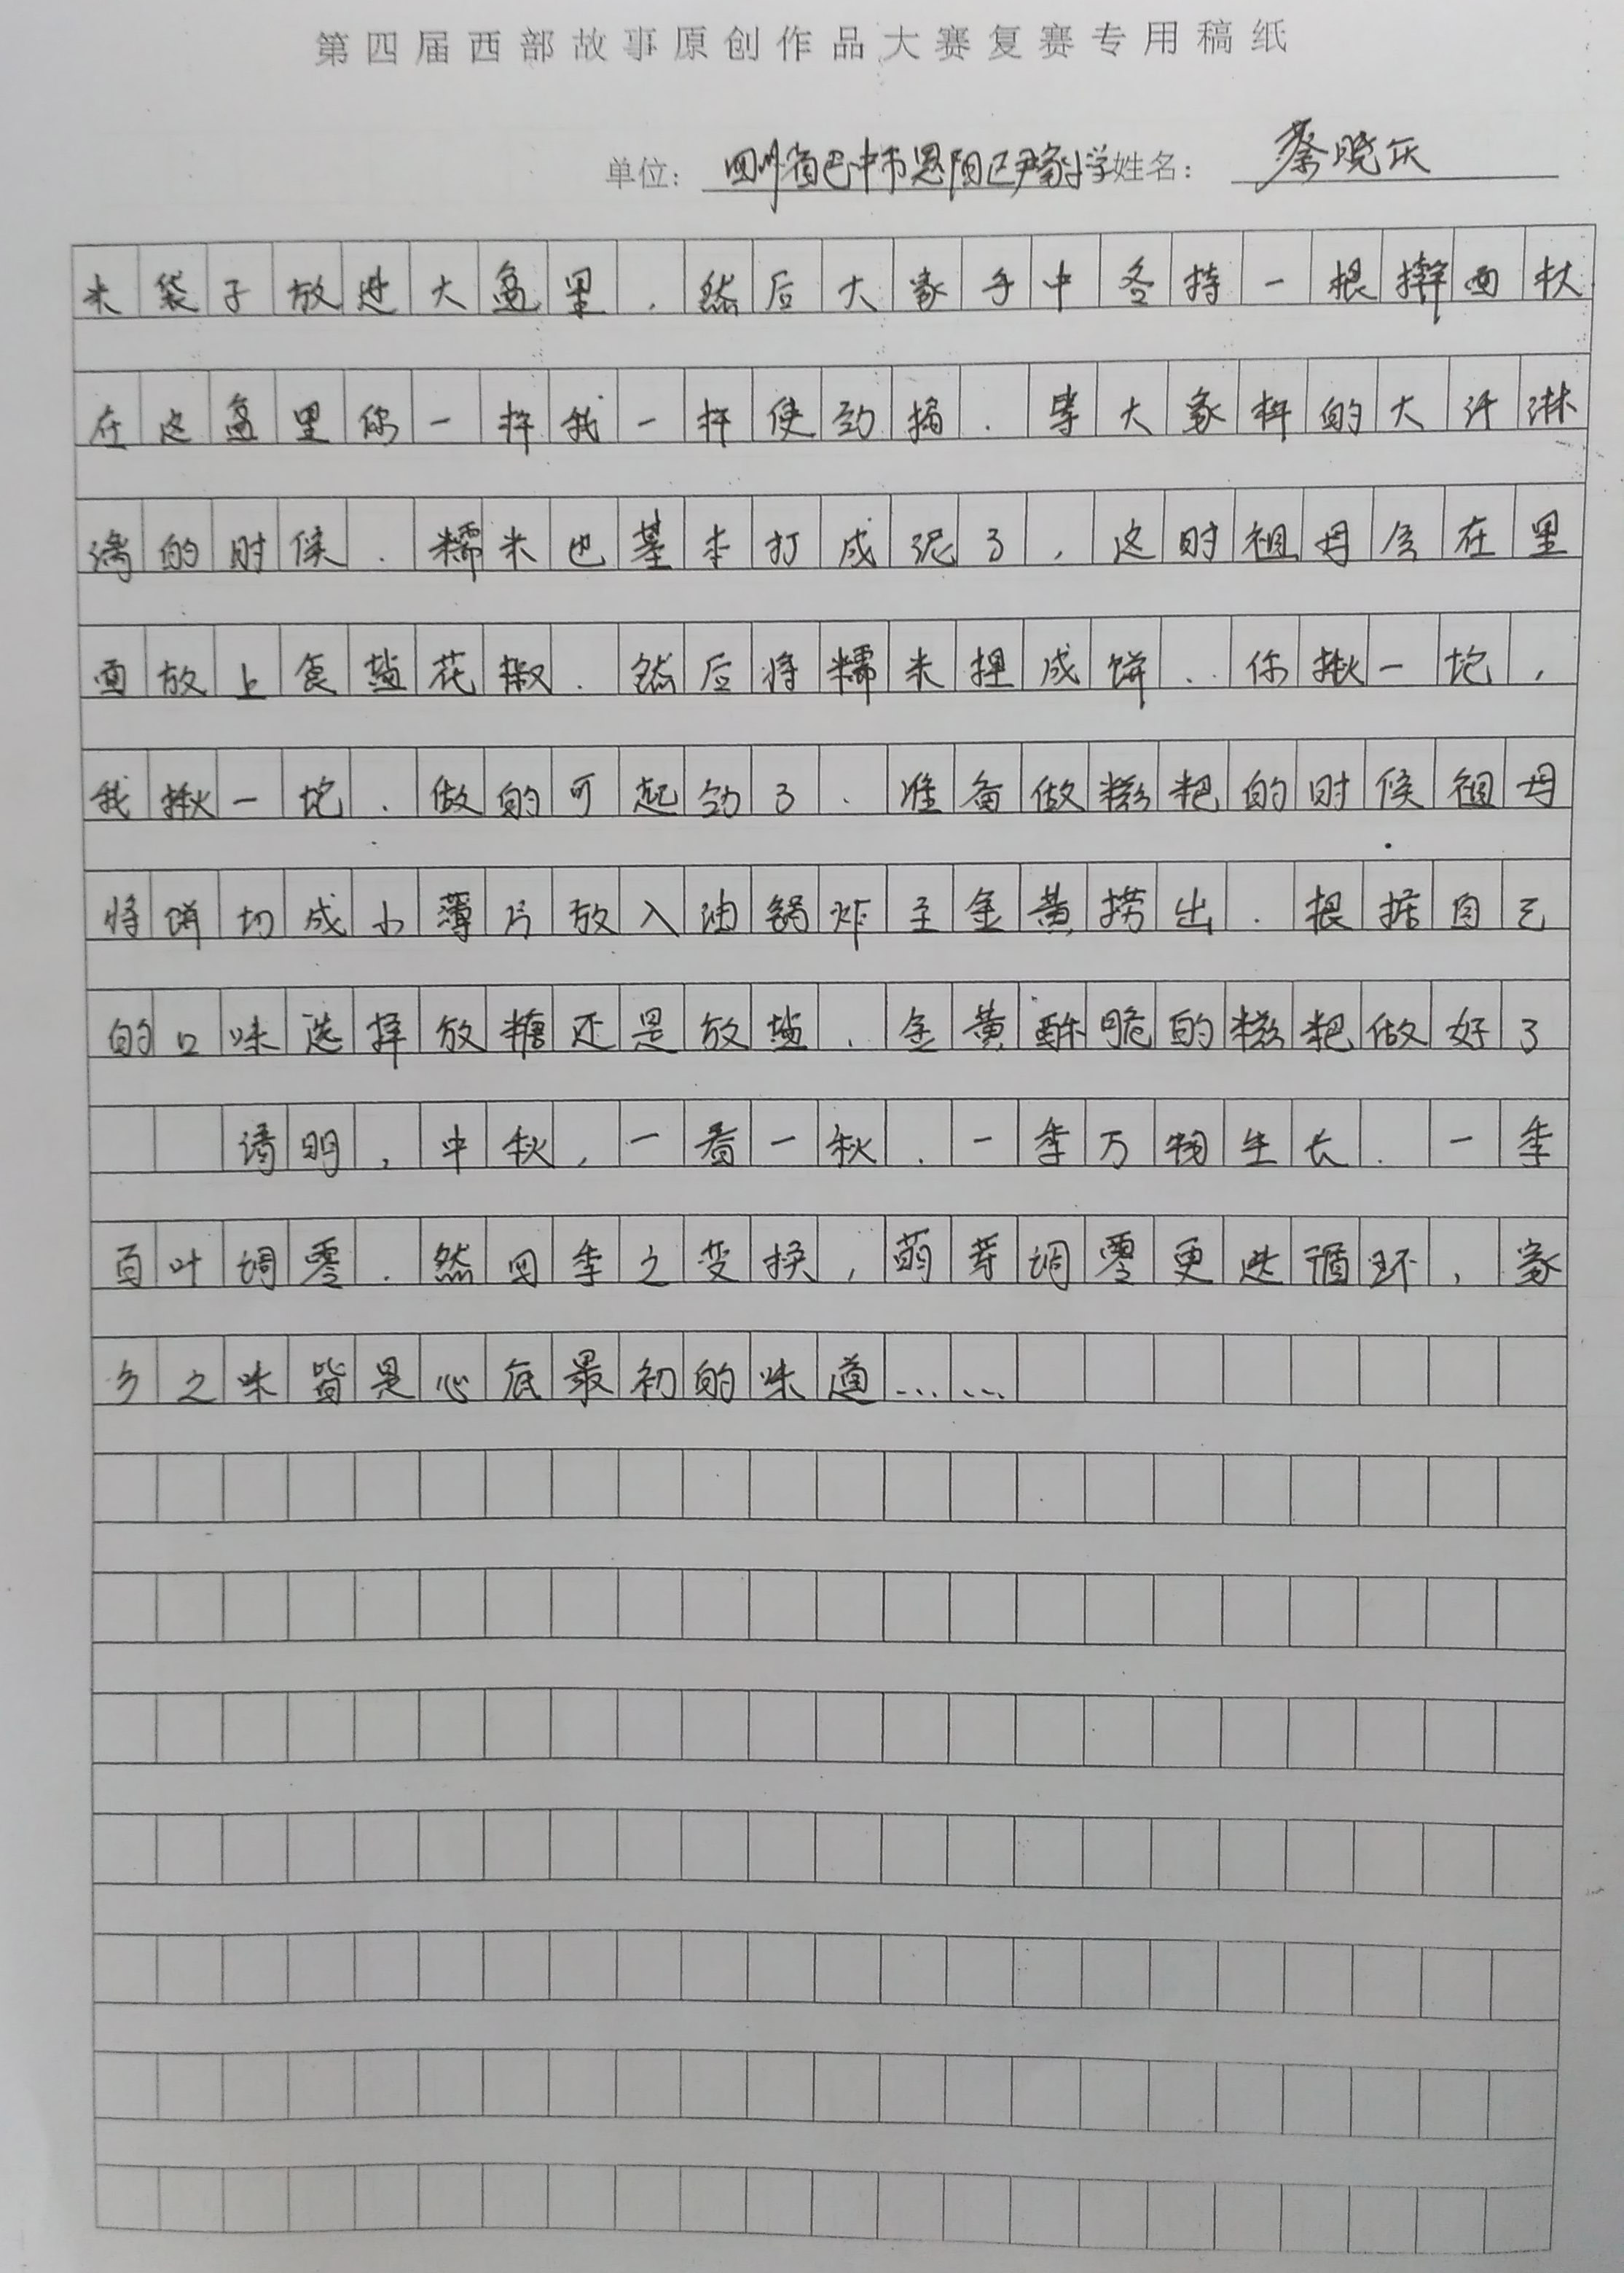 第四届西部故事原创作品大赛复赛专用稿纸
单位：四川省巴中市恩阳区尹家小学姓名：蔡晓庆
米袋子放进大盆里.然后大家手中各持一根擀面杖
在这盆里你一杵我一杵使劲捣.等大家杵的大汗淋
漓的时候.糯米也基本打成泥了,这时祖母会在里
面放上食盐花椒.然后将糯米捏成饼.你揪一坨,
我揪一坨.做的可起劲了.准备做糍粑的时候祖母
将饼切成小薄片放入油锅炸至金黄捞出.根据自己
的口味选择放糖还是放盐.金黄酥脆的糍粑做好了
清明,中秋,一春一秋.一季万物生长.一季
百叶凋零.然四季之变换,萌芽凋零更迭循环,家
乡之味皆是心底最初的味道……